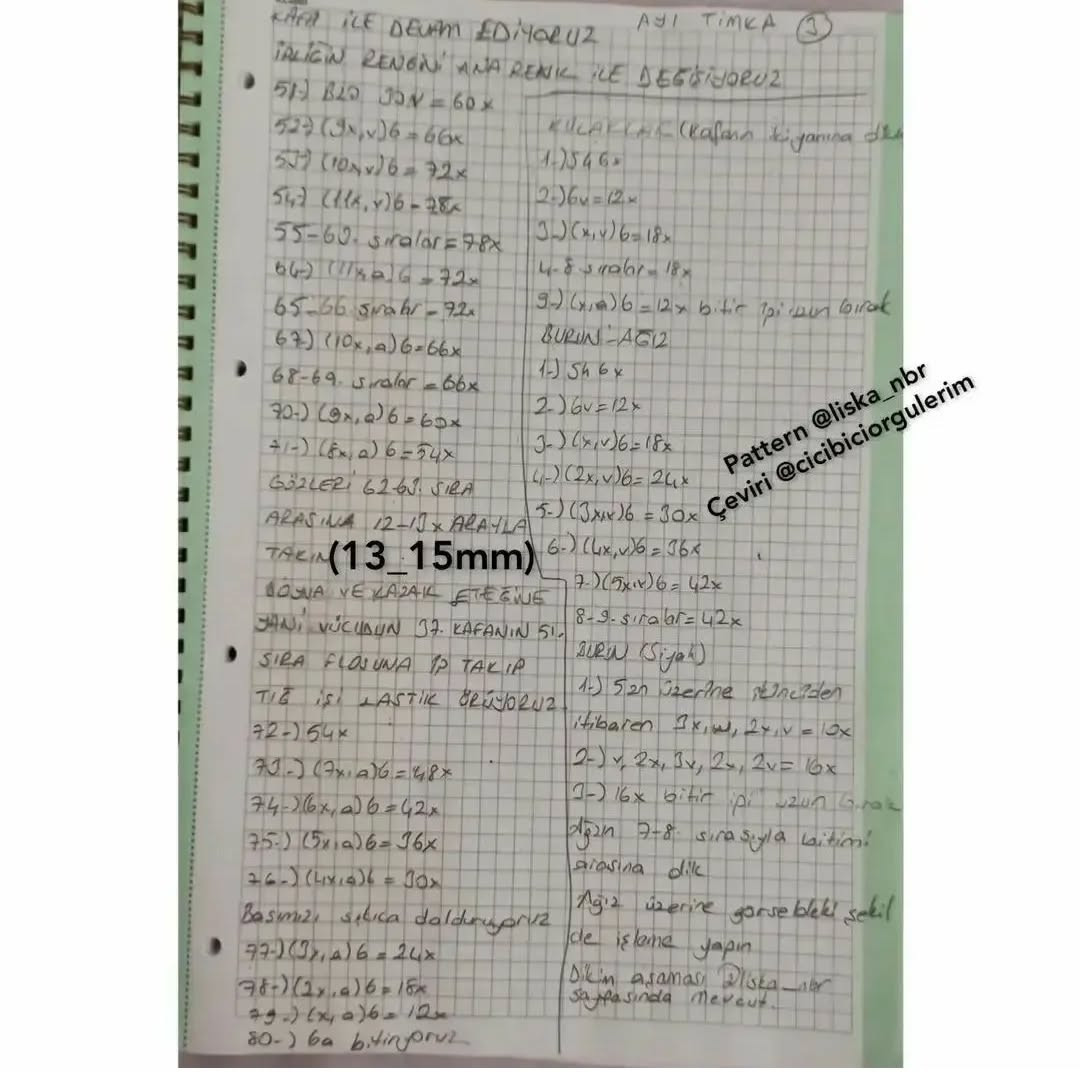 KAFA İLE DEVAM EDİYORUZ
AYI TİMKA 3
İPLİĞİN RENGİNİ ANA RENK İLE DEĞİŞİYORUZ
51-) BLO = 60x
52-) (9x,v)6 = 66x
53-) (10x,v)6 = 72x
54-) (11x,v)6 = 78x
55-63. sıralar = 78x
64-) (11x,a)6 = 72x
65-66 sıralar = 72x
67-) (10x,a)6=66x
68-69. sıralar = 66x
70-) (9x,a)6 = 60x
71-) (8x,a)6=54x
GÖZLERİ 62-63. SIRA
ARASINA 12-13x ARAYLA
TAKIN (13_15mm)
BOYNA VE KAZAK ETEĞİNE
YANİ VÜCUDUN 37. KAFANIN 51.
SIRA FLOSUNA İP TAKIP
TIĞ İŞİ LASTİK ÖRÜYORUZ
72-) 54x
73-) (7x,a)6=48x
74-) (6x,a)6=42x
75-) (5x,a)6=36x
76-) (4x,a)6 = 30x
Başımızı sıkıca dolduruyoruz
77-) (3x,a)6 = 24x
78-) (2x,a)6=18x
79-) (x,a)6=12x
80-) 6a bitiriyoruz
KULAKLAR (Kafanın iki yanına
1-) Sh 6x
2-) 6v=12x
3-) (x,v)6=18x
4-8 sıralar=18x
9-) (x,a)6=12x bitir ipi uzun bırak
BURUN-AĞIZ
1-) Sh 6x
2-) 6v=12x
3-) (x,v)6=18x
4-) (2x,v)6=24x
5-) (3x,v)6=30x
6-) (4x,v)6=36x
7-) (5x,v)6=42x
8-9. sıralar=42x
BURUN (Siyah)
1-) 5zn üzerine ikinciden
itibaren 3x,w,2x,v=10x
2-) v, 2x, 3v, 2x, 2v= 16x
3-) 16x bitir ipi uzun bırak
Ağzın 7-8. sırasıyla bitimi
arasına dik
Ağız üzerine görseldeki şekil
de işleme yapın
Dikim aşaması @liska_nbr
sayfasında mevcut.
Pattern @liska_nbr
Çeviri @cicibiciorgulerim